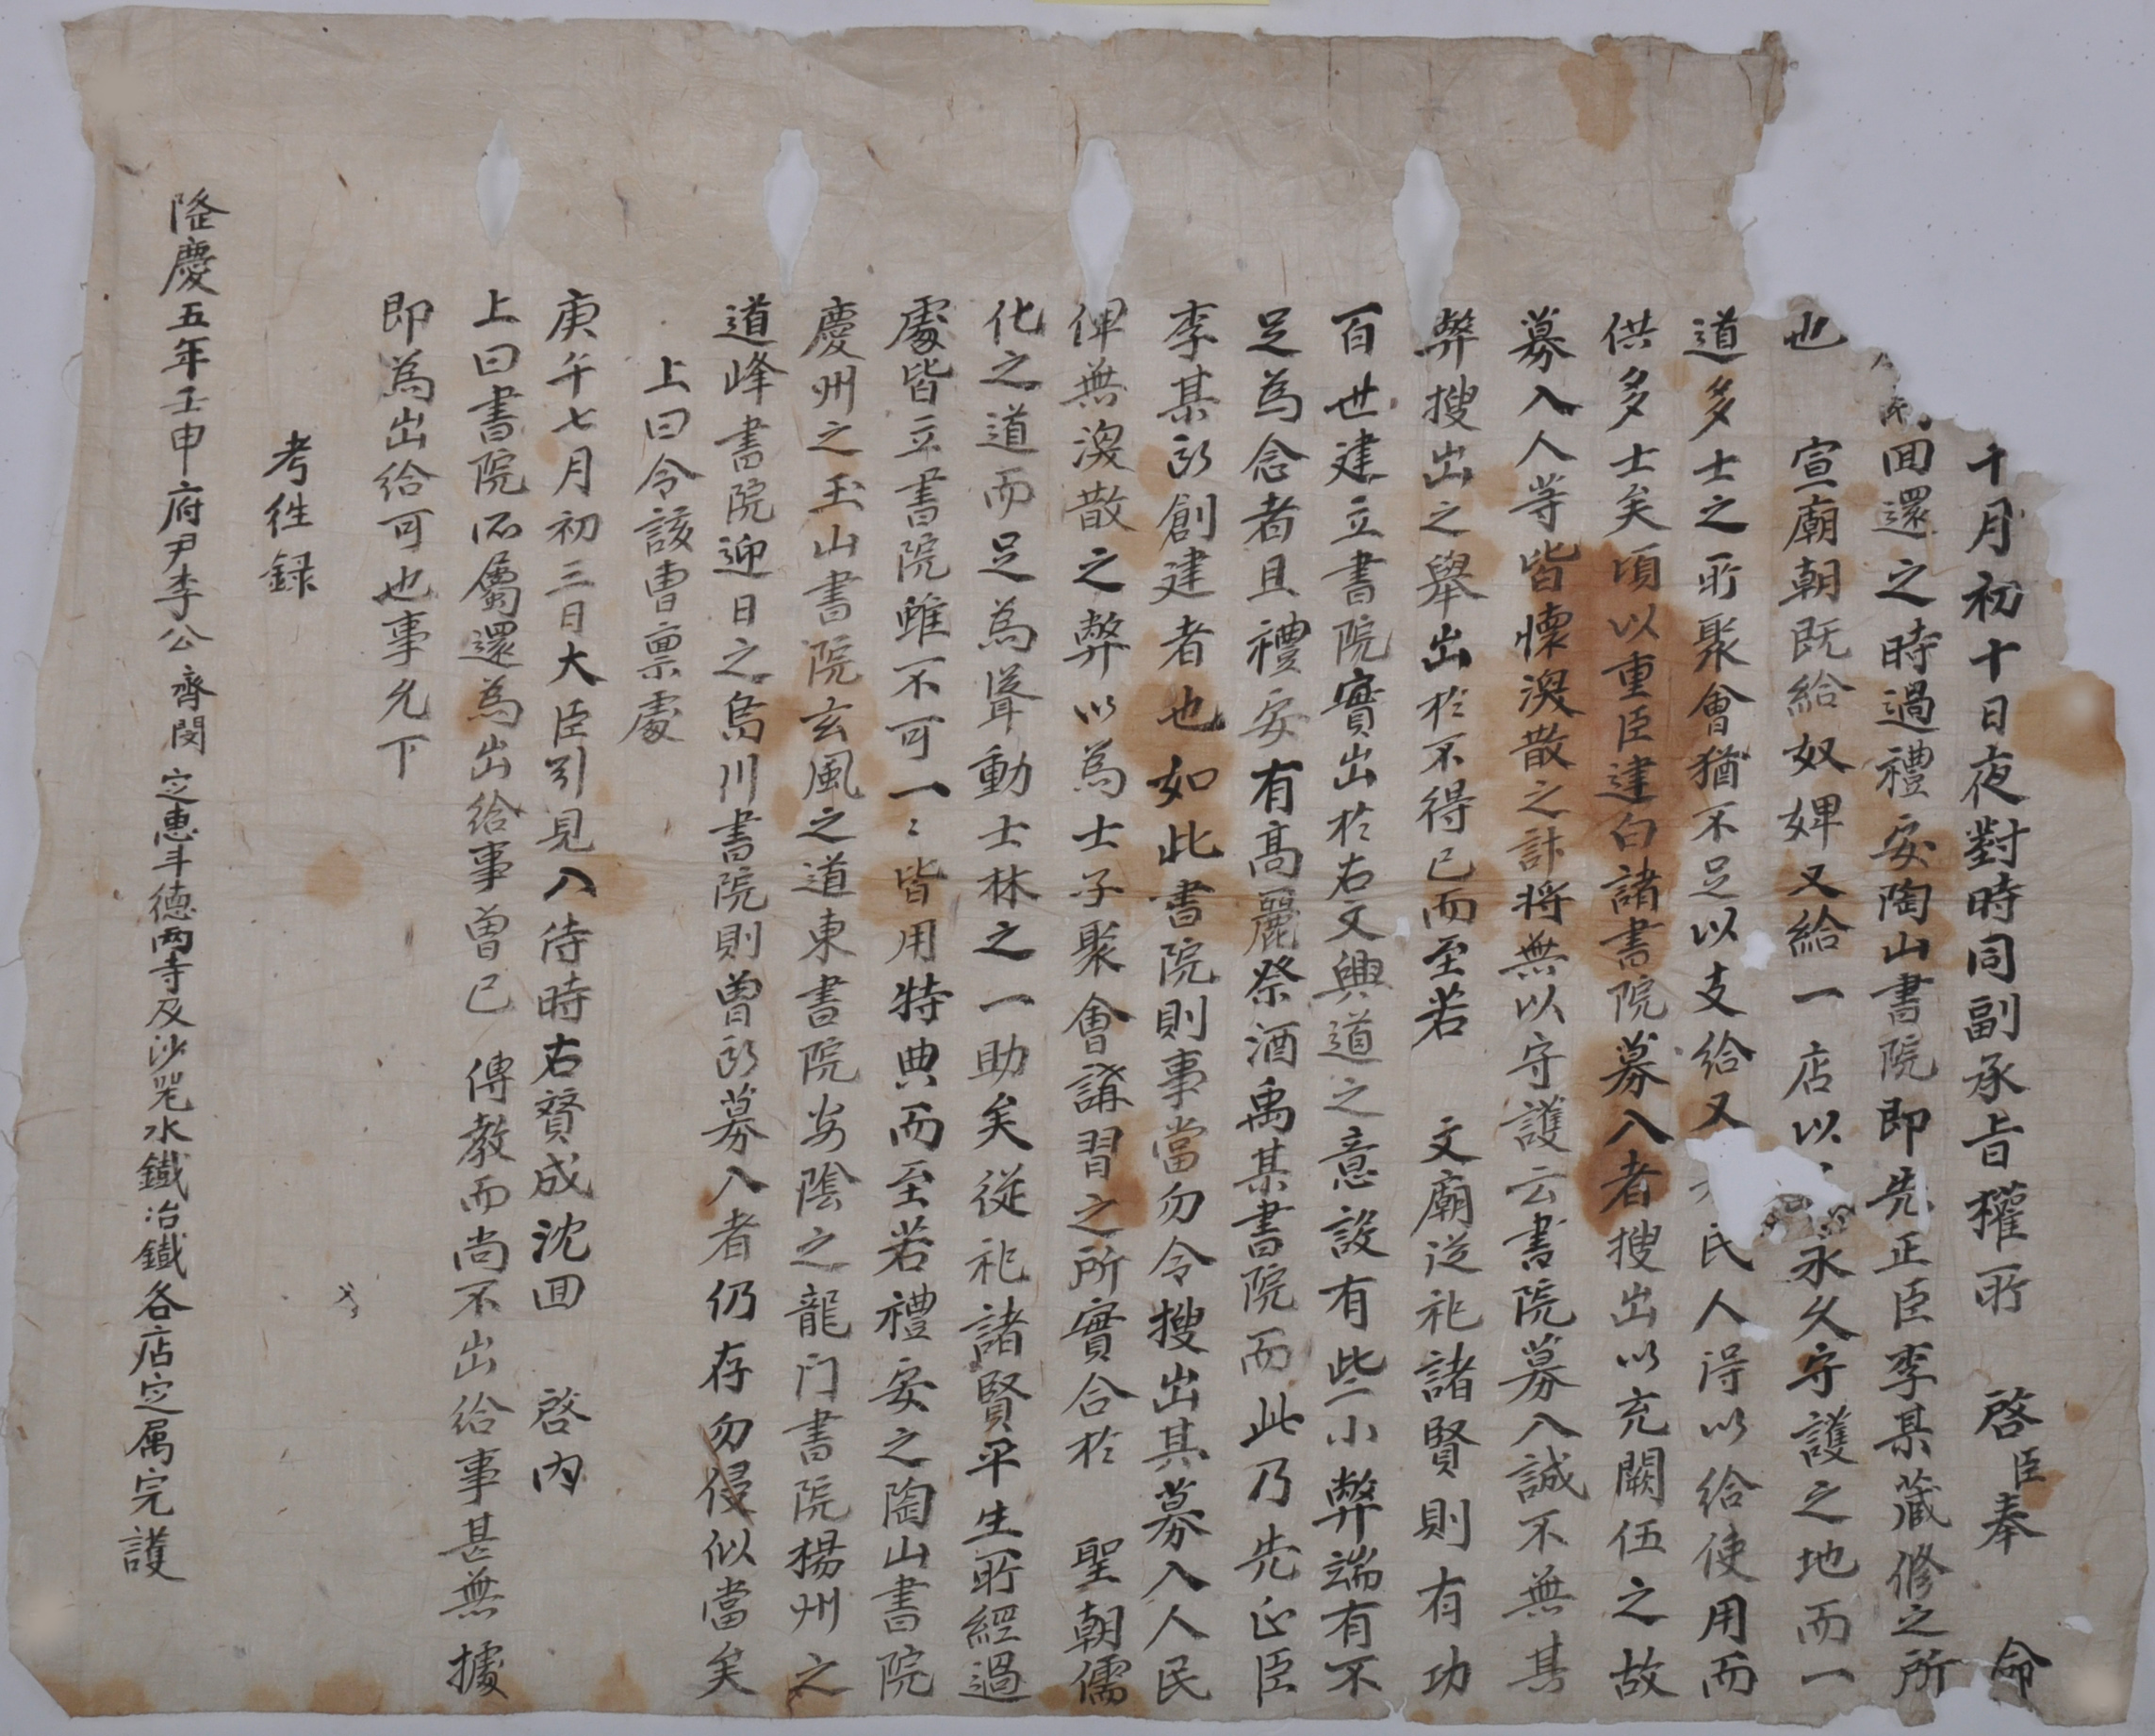 十月初十日夜對時同副承旨權所 啓臣奉 命
回還之時過禮安陶山書院即先正臣李某藏修之所
也 宣廟朝既給奴婢又給一店以 永久守護之地而一
道多士之所聚會猶不足以支給又 氏人得以給使用而
供多士矣頃以重臣建白諸書院募入者搜出以充闕伍之故
募入人等皆懷渙散之計將無以守護云書院募入誠不無其
弊搜出之舉出於不得已而至若 文廟從祀諸賢則有功
百世建立書院實出於右文興道之意設有些小弊端有不
足為念者且禮安有高麗祭酒禹某書院而此乃先正臣
李某所創建者也如此書院則事當勿令搜出其募入人民
俾無渙散之弊以為士子聚會講習之所實合於 聖朝儒
化之道而足為聳動士林之一助矣從祀諸賢平生所經過
處皆立書院雖不可一〻皆用特典而至若禮安之陶山書院
慶州之玉山書院玄風之道東書院安陰之龍门書院楊州之
道峰書院迎日之烏川書院則曾所募入者仍存勿侵似當矣
上曰令該曹稟處
庚午七月初三日大臣引見入侍時右贊成沈回 啓內
上曰書院所屬還為出給事曾已 傳教而尚不出給事甚無據
即為出給可也事允下
考往録
隆慶五年壬申府尹李公齊閔定惠斗德兩寺及沙器水鐵冶鐵各店定属完護